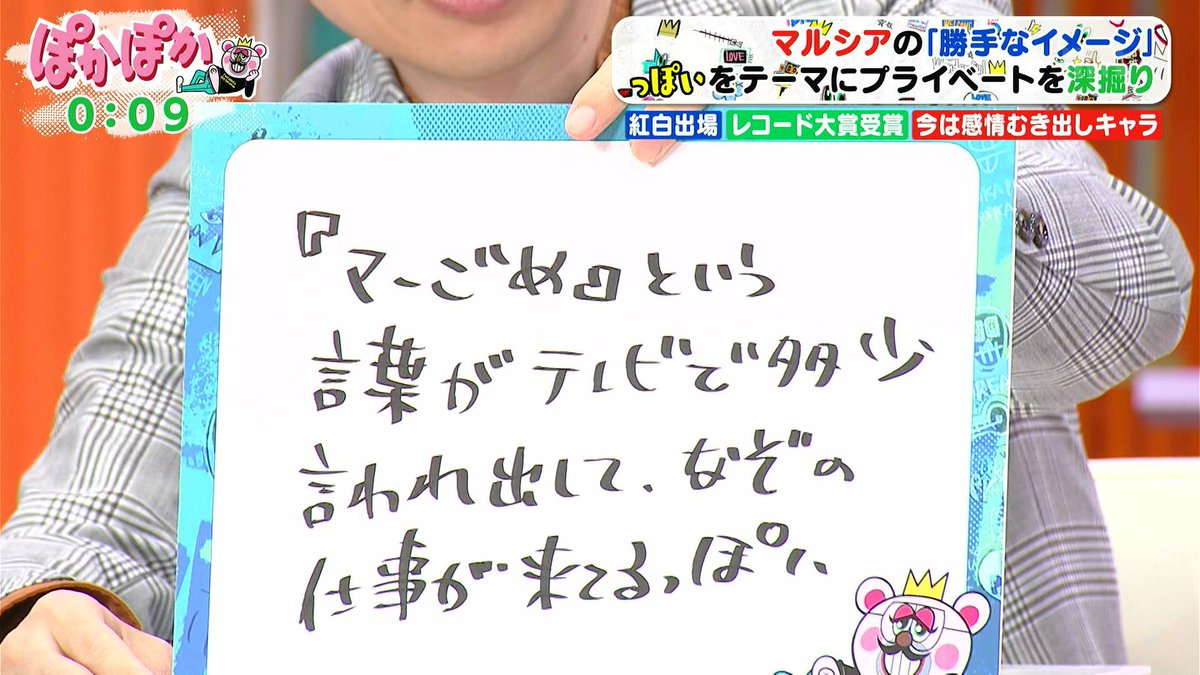 ぽかぽか
0:09
マルシアの「勝手なイメージ」
っぽいをテーマにプライベートを深掘り
紅白出場 レコード大賞受賞 今は感情むき出しキャラ
LOVE
『マーごめ』という
言葉がテレビで多少
言われ出して、なぞの
仕事が来てるっぽい